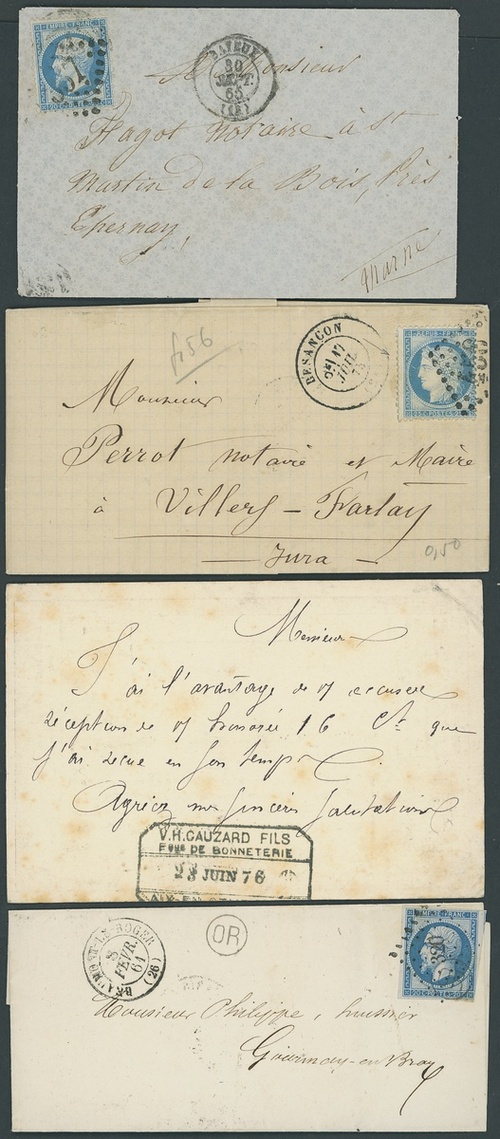 EMPIRE FRANC
20 C. POSTES 20 C.
BAYEUX
30
SEPT.
65
(13)
A Monsieur
Hagot Notaire à St
Martin de la Bois, Près
Epernay,
Marne
f56
BESANÇON
JUIL
REPUB FRANC
25 C. POSTES 25 C.
Monsieur
Perrot notaire et Maire
à Villers-Farlay
Jura
0,50
Monsieur
J'ai l'avantage de V accuser
réception de V honorée 16 Ct que
j'ai recue en son temps.
Agréez mes sincères salutations
V.H. CAUZARD FILS
FQUE DE BONNETERIE
23 JUIN 76
AIX-EN-
BEAUMONT-LE-ROGER
8
FEVR.
61
(26)
OR
EMPIRE FRANC
20 C. POSTES 20 C.
Monsieur Philippe, huissier
Gournay-en-Bray